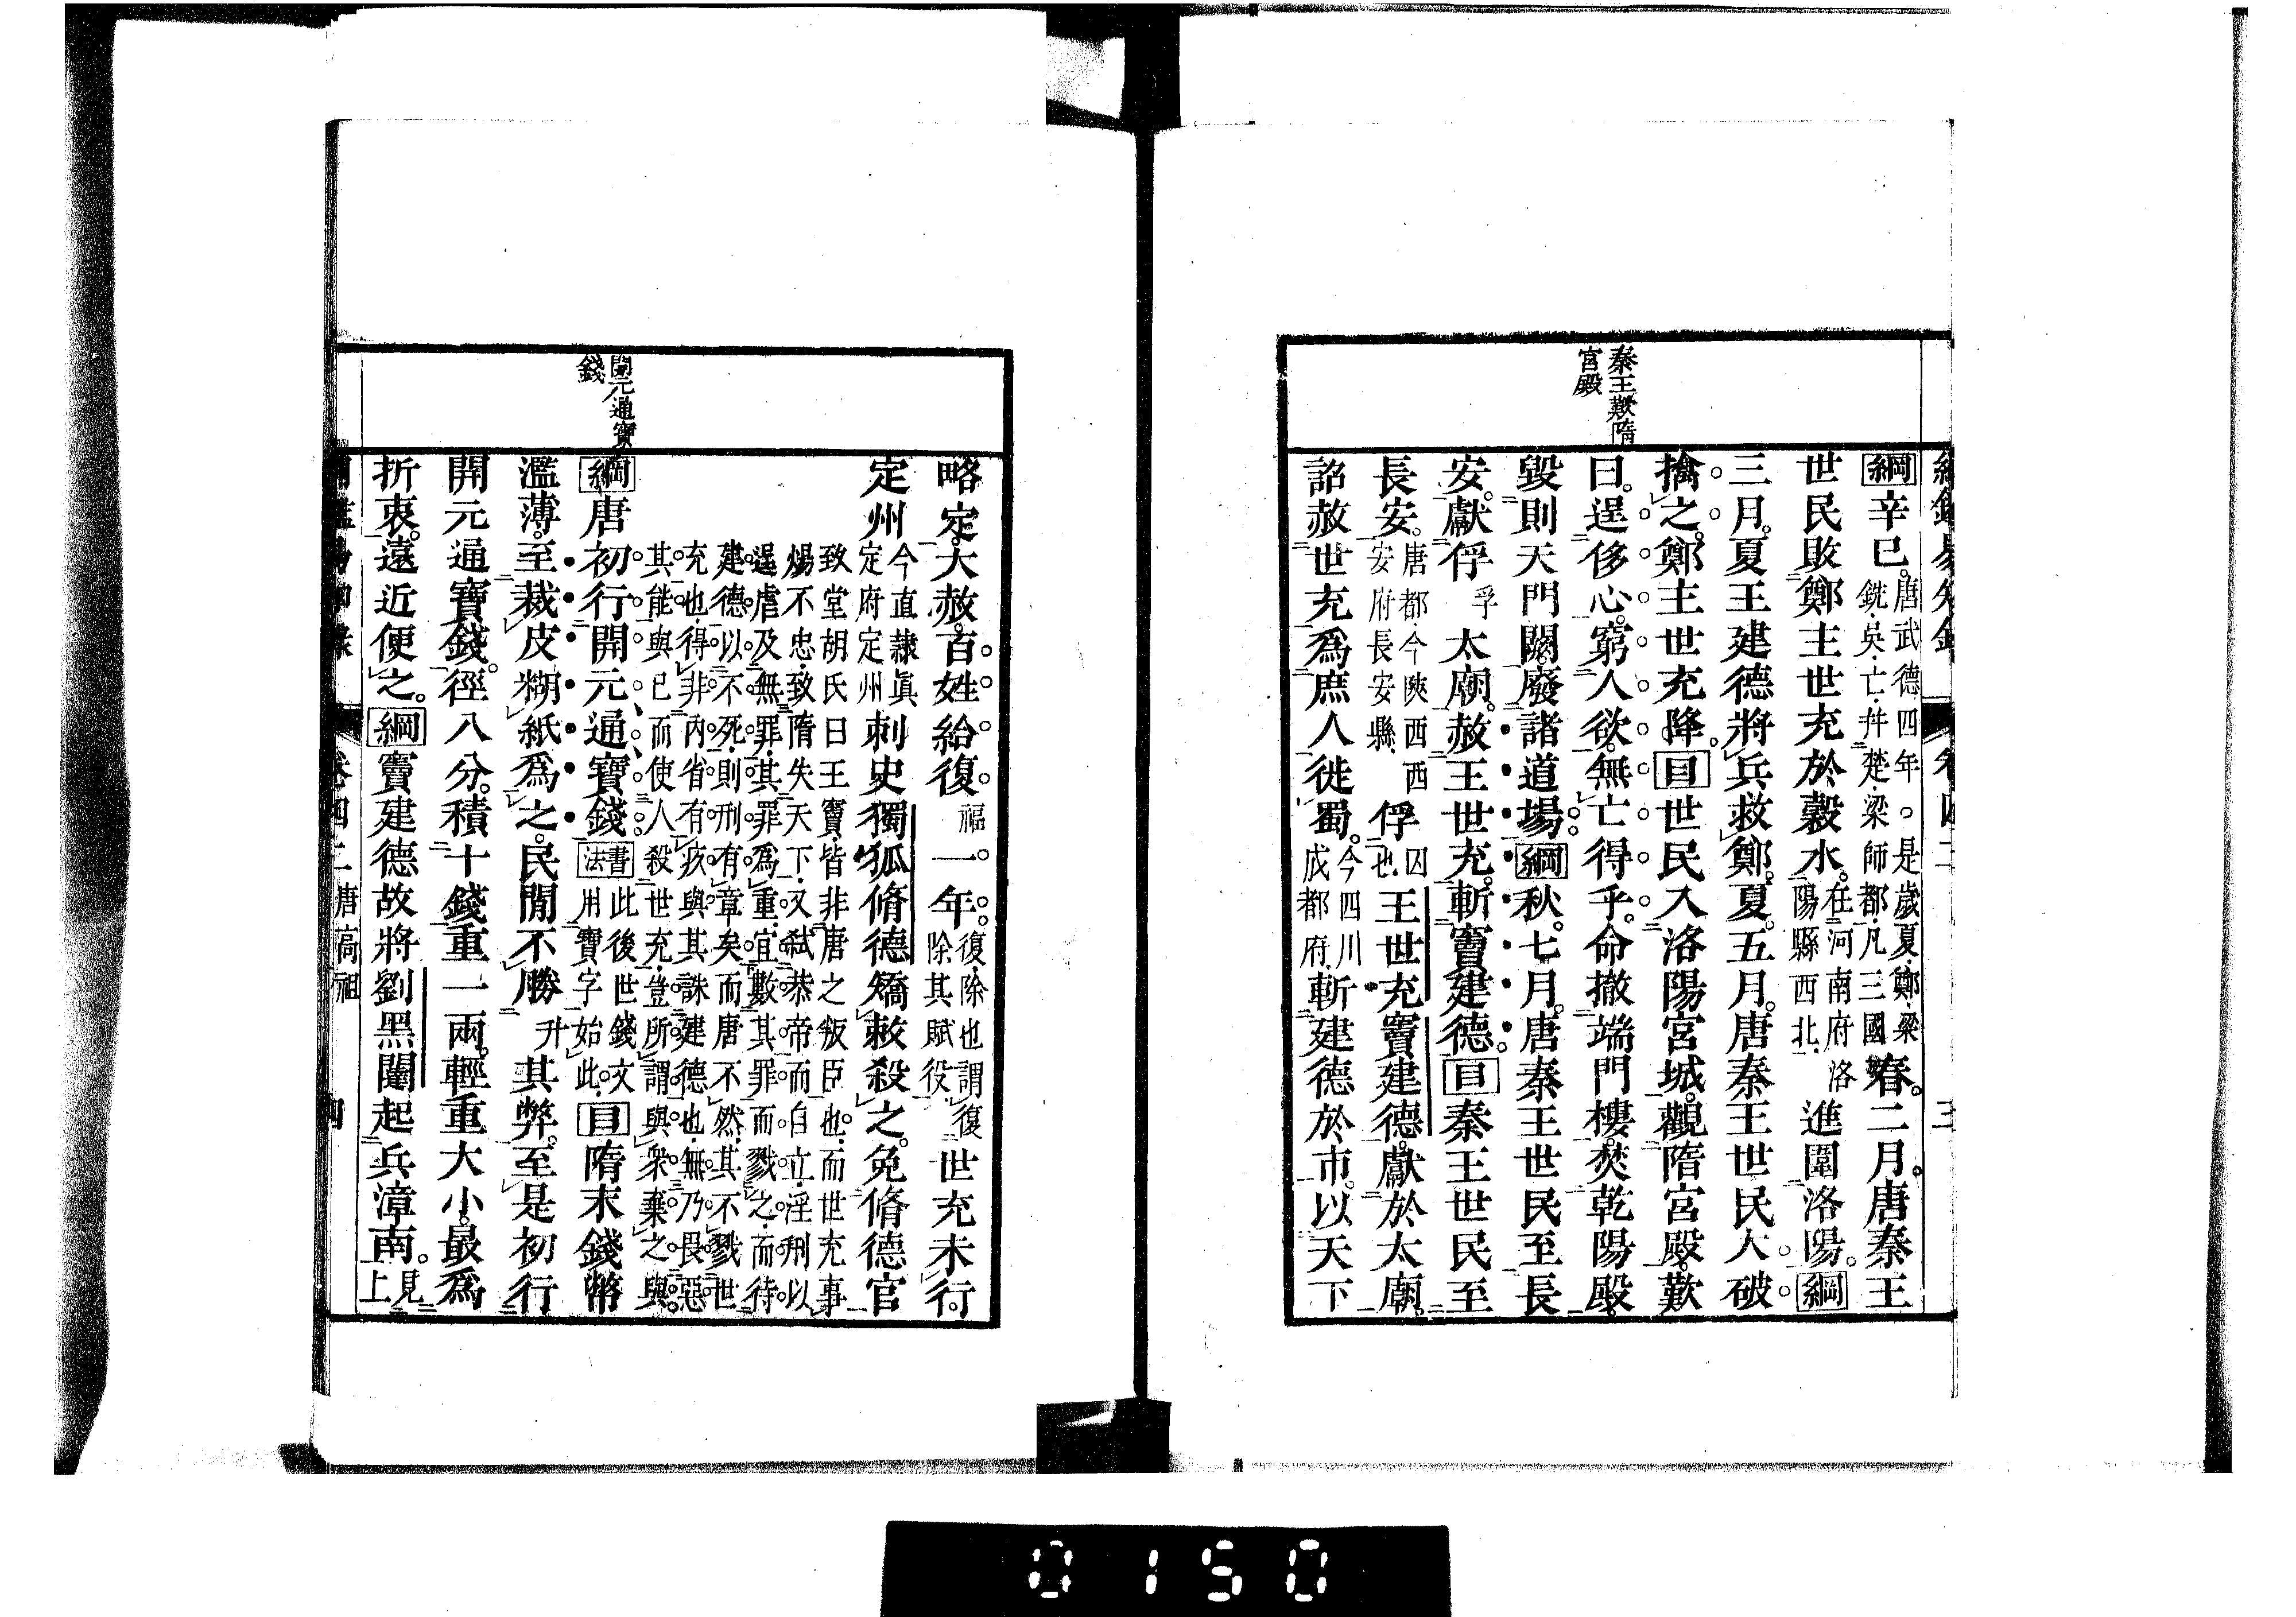 秦王歎隋
宮殿
綱辛巳。唐武德四年。是歲夏鄭梁
銑吳亡幷楚梁師都凡三國春。二月。唐秦王
世民敗鄭主世充於穀水。在河南府洛
陽縣西北進圍洛陽。綱
三月。夏王建德將兵救鄭。夏。五月。唐秦王世民大破
擒之。鄭主世充降。目世民入洛陽宮城。觀隋宮殿。歎
曰。逞侈心。窮人欲。無亡得乎。命撤端門樓。焚乾陽殿。
毀則天門闕。廢諸道場。綱秋。七月。唐秦王世民至長
安。獻俘孚太廟。赦王世充。斬竇建德。目秦王世民至
長安。唐都今陝西西
安府長安縣俘囚
也王世充竇建德。獻於太廟。
詔赦世充爲庶人徙蜀。今四川
成都府斬建德於市。以天下
開元通寶
錢
略定。大赦。百姓給復福一年。復除也謂復
除其賦役世充未行。
定州今直隸眞
定府定州刺史獨狐脩德矯敕殺之。免脩德官
致堂胡氏曰王竇皆非唐之叛臣也而世充事
煬不忠致隋失天下又弒恭帝而自立淫刑以
逞虐及無罪其罪爲重宜數其罪而戮之而待
建德以不死則刑有章矣而唐不然其不戮世
充也得非內省有疚與其誅建德也無乃畏惡
其能與已而使人殺世充豈所謂與衆棄之與
綱唐初行開元通寶錢書
法此後世錢文
用寶字始此目隋末錢幣
濫薄。至裁皮糊紙爲之。民閒不勝升其弊。至是初行
開元通寶錢。徑八分。積十錢重一兩。輕重大小。最爲
折衷。遠近便之。綱竇建德故將劉黑闥起兵漳南。見
上
卷四二 唐高祖 四
0150